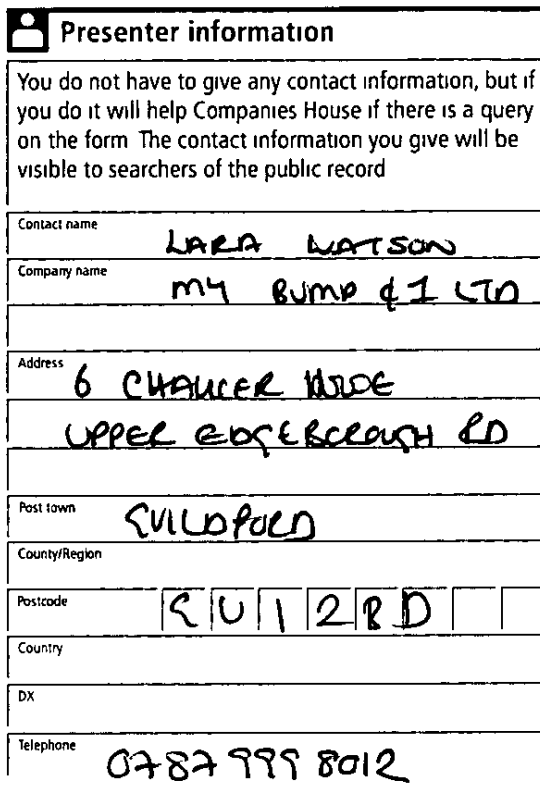 Presenter information
You do not have to give any contact information, but if
you do it will help Companies House if there is a query
on the form The contact information you give will be
visible to searchers of the public record
Contact name
LARA WATSON
Company name
MY BUMP & I LTD
Address
6 CHAUCER
UPPER EDGEBOROUGH RD
Post town
GUILDFORD
County/Region
Postcode
GU1 2BD
Country
DX
Telephone
0787 999 8012